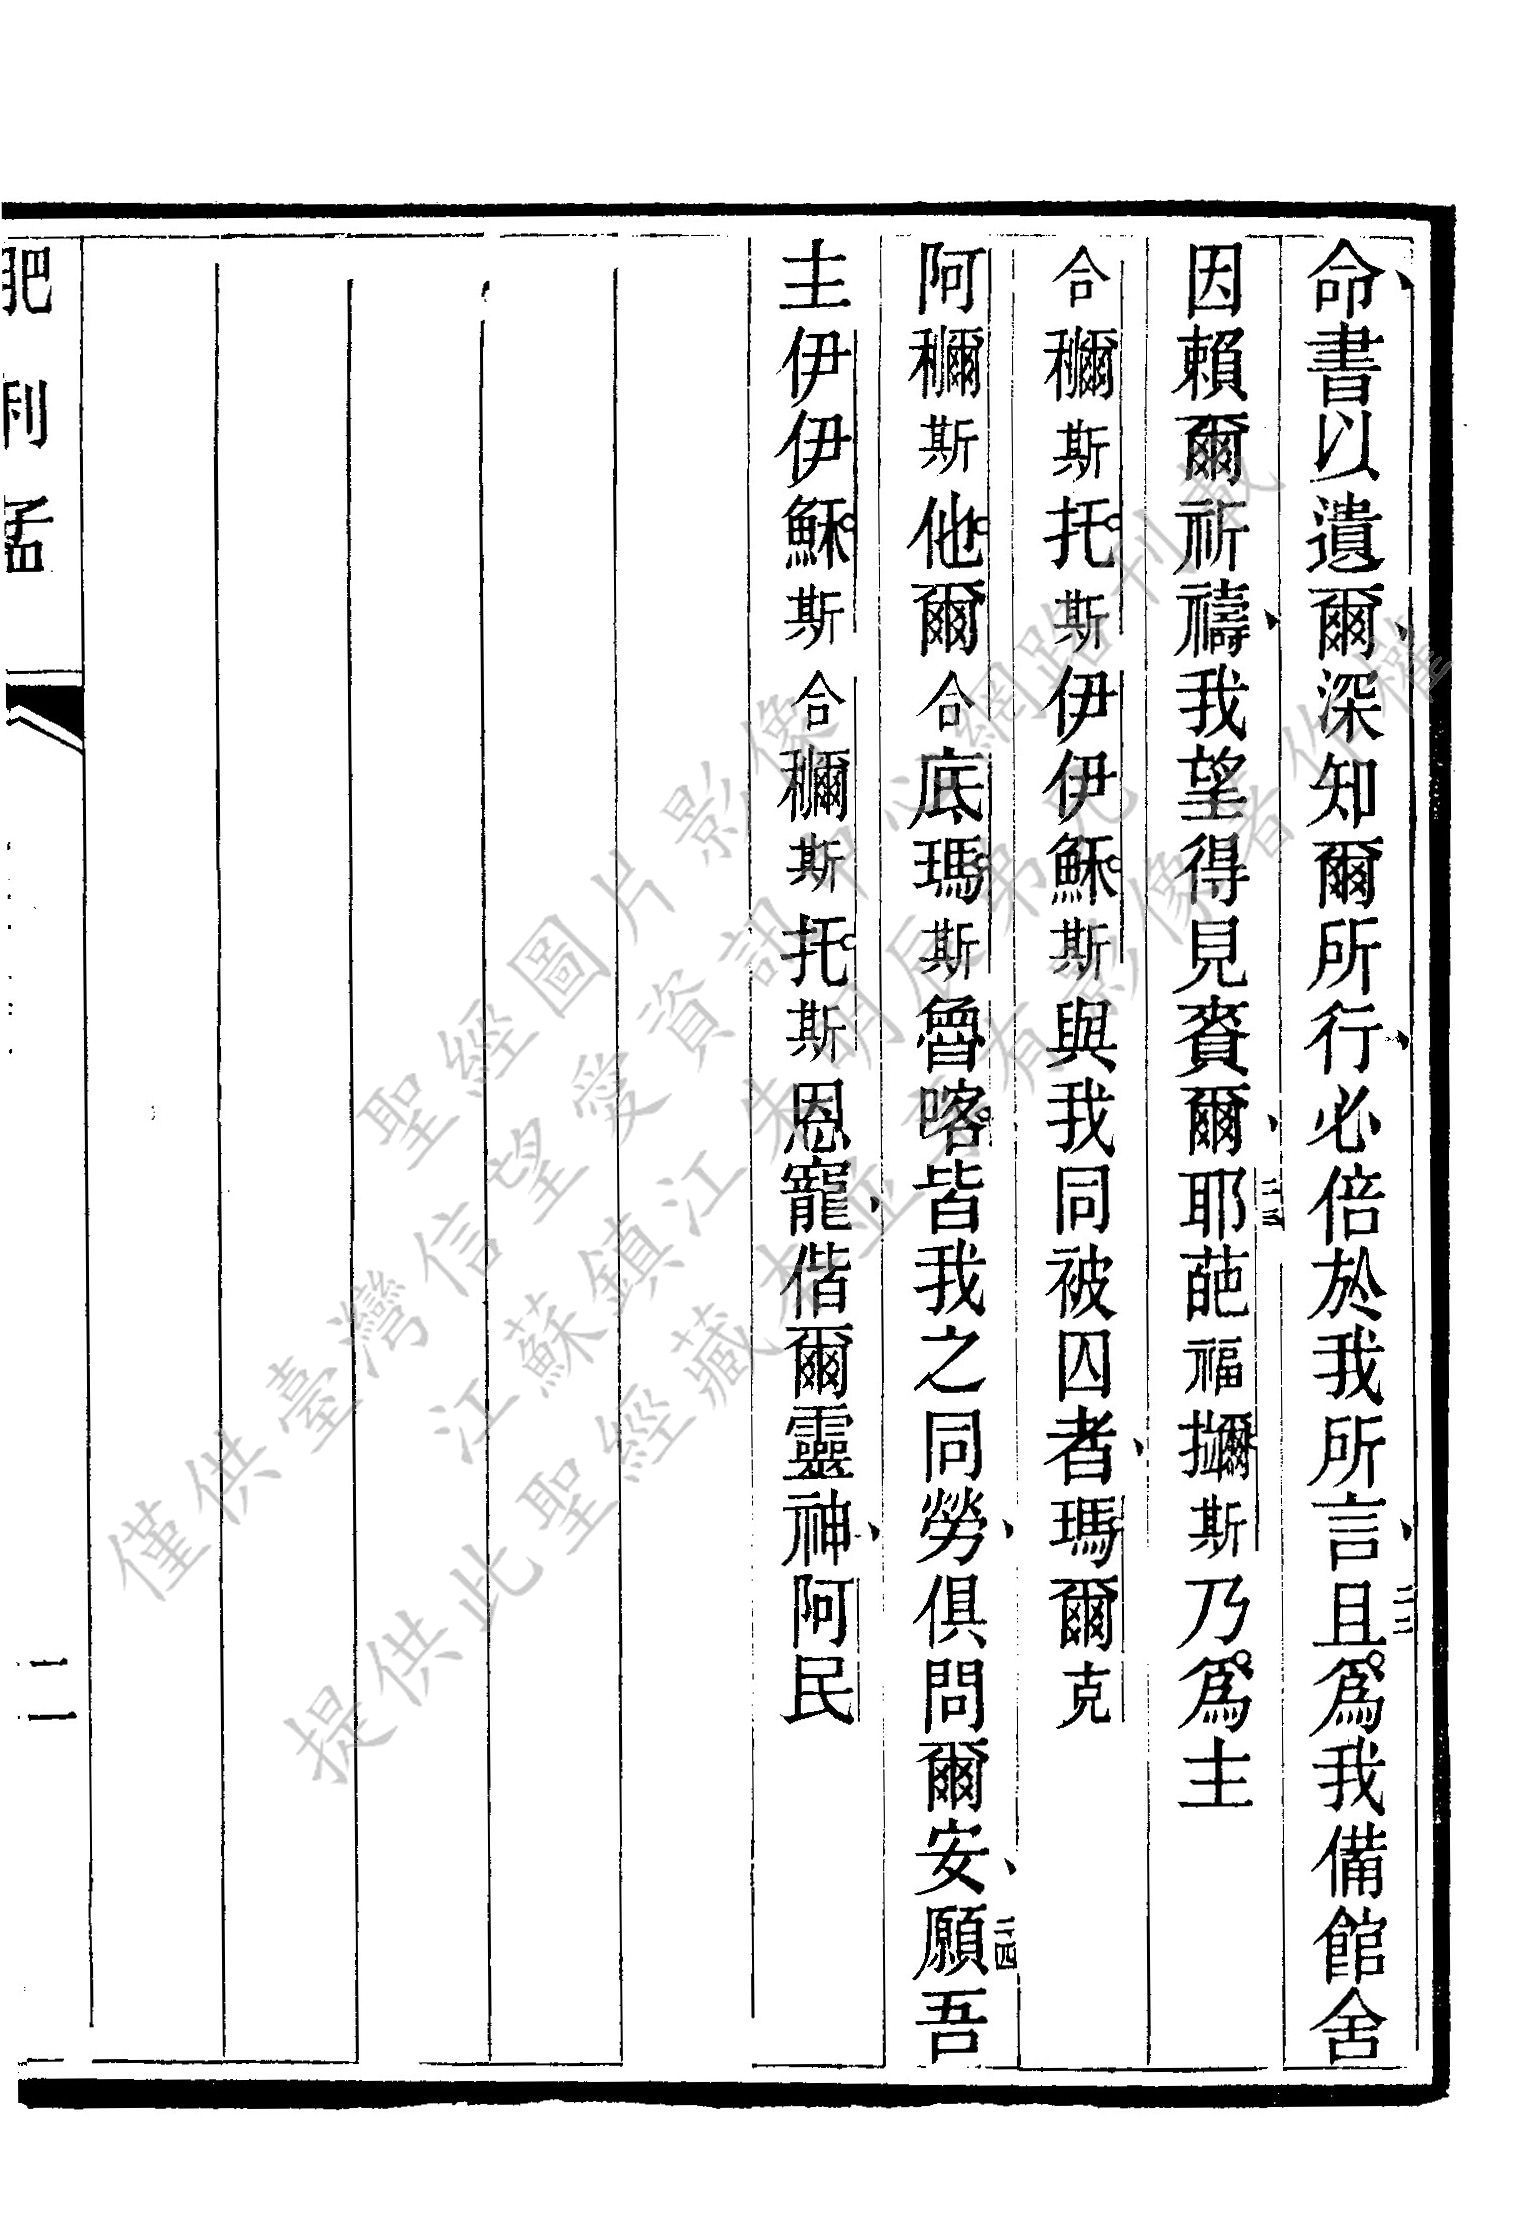 命、書以遺爾、深知爾所行、必倍於我所言、二二且爲我備館舍
因賴爾祈禱、我望得見賚爾、二三耶葩福擟斯乃爲主
合穪斯托斯伊伊穌斯與我同被囚者、瑪爾克
阿穪斯他爾合底瑪斯魯喀皆我之同勞、俱問爾安、二四願吾
主伊伊穌斯合穪斯托斯恩寵、偕爾靈神、阿民
肥利孟
聖經圖片影像
僅供臺灣信望愛資訊中心網路刊載
江蘇鎮江朱明辰弟兄
提供此聖經藏本並享有影像著作權